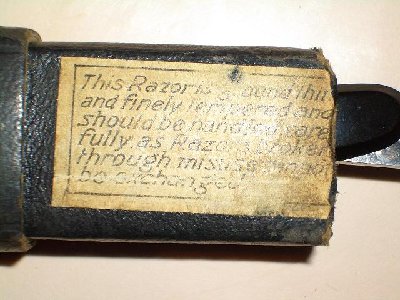 This Razor is ground thin
and finely tempered and
should be handled care
fully, as Razors broken
through misuse cannot
be exchanged